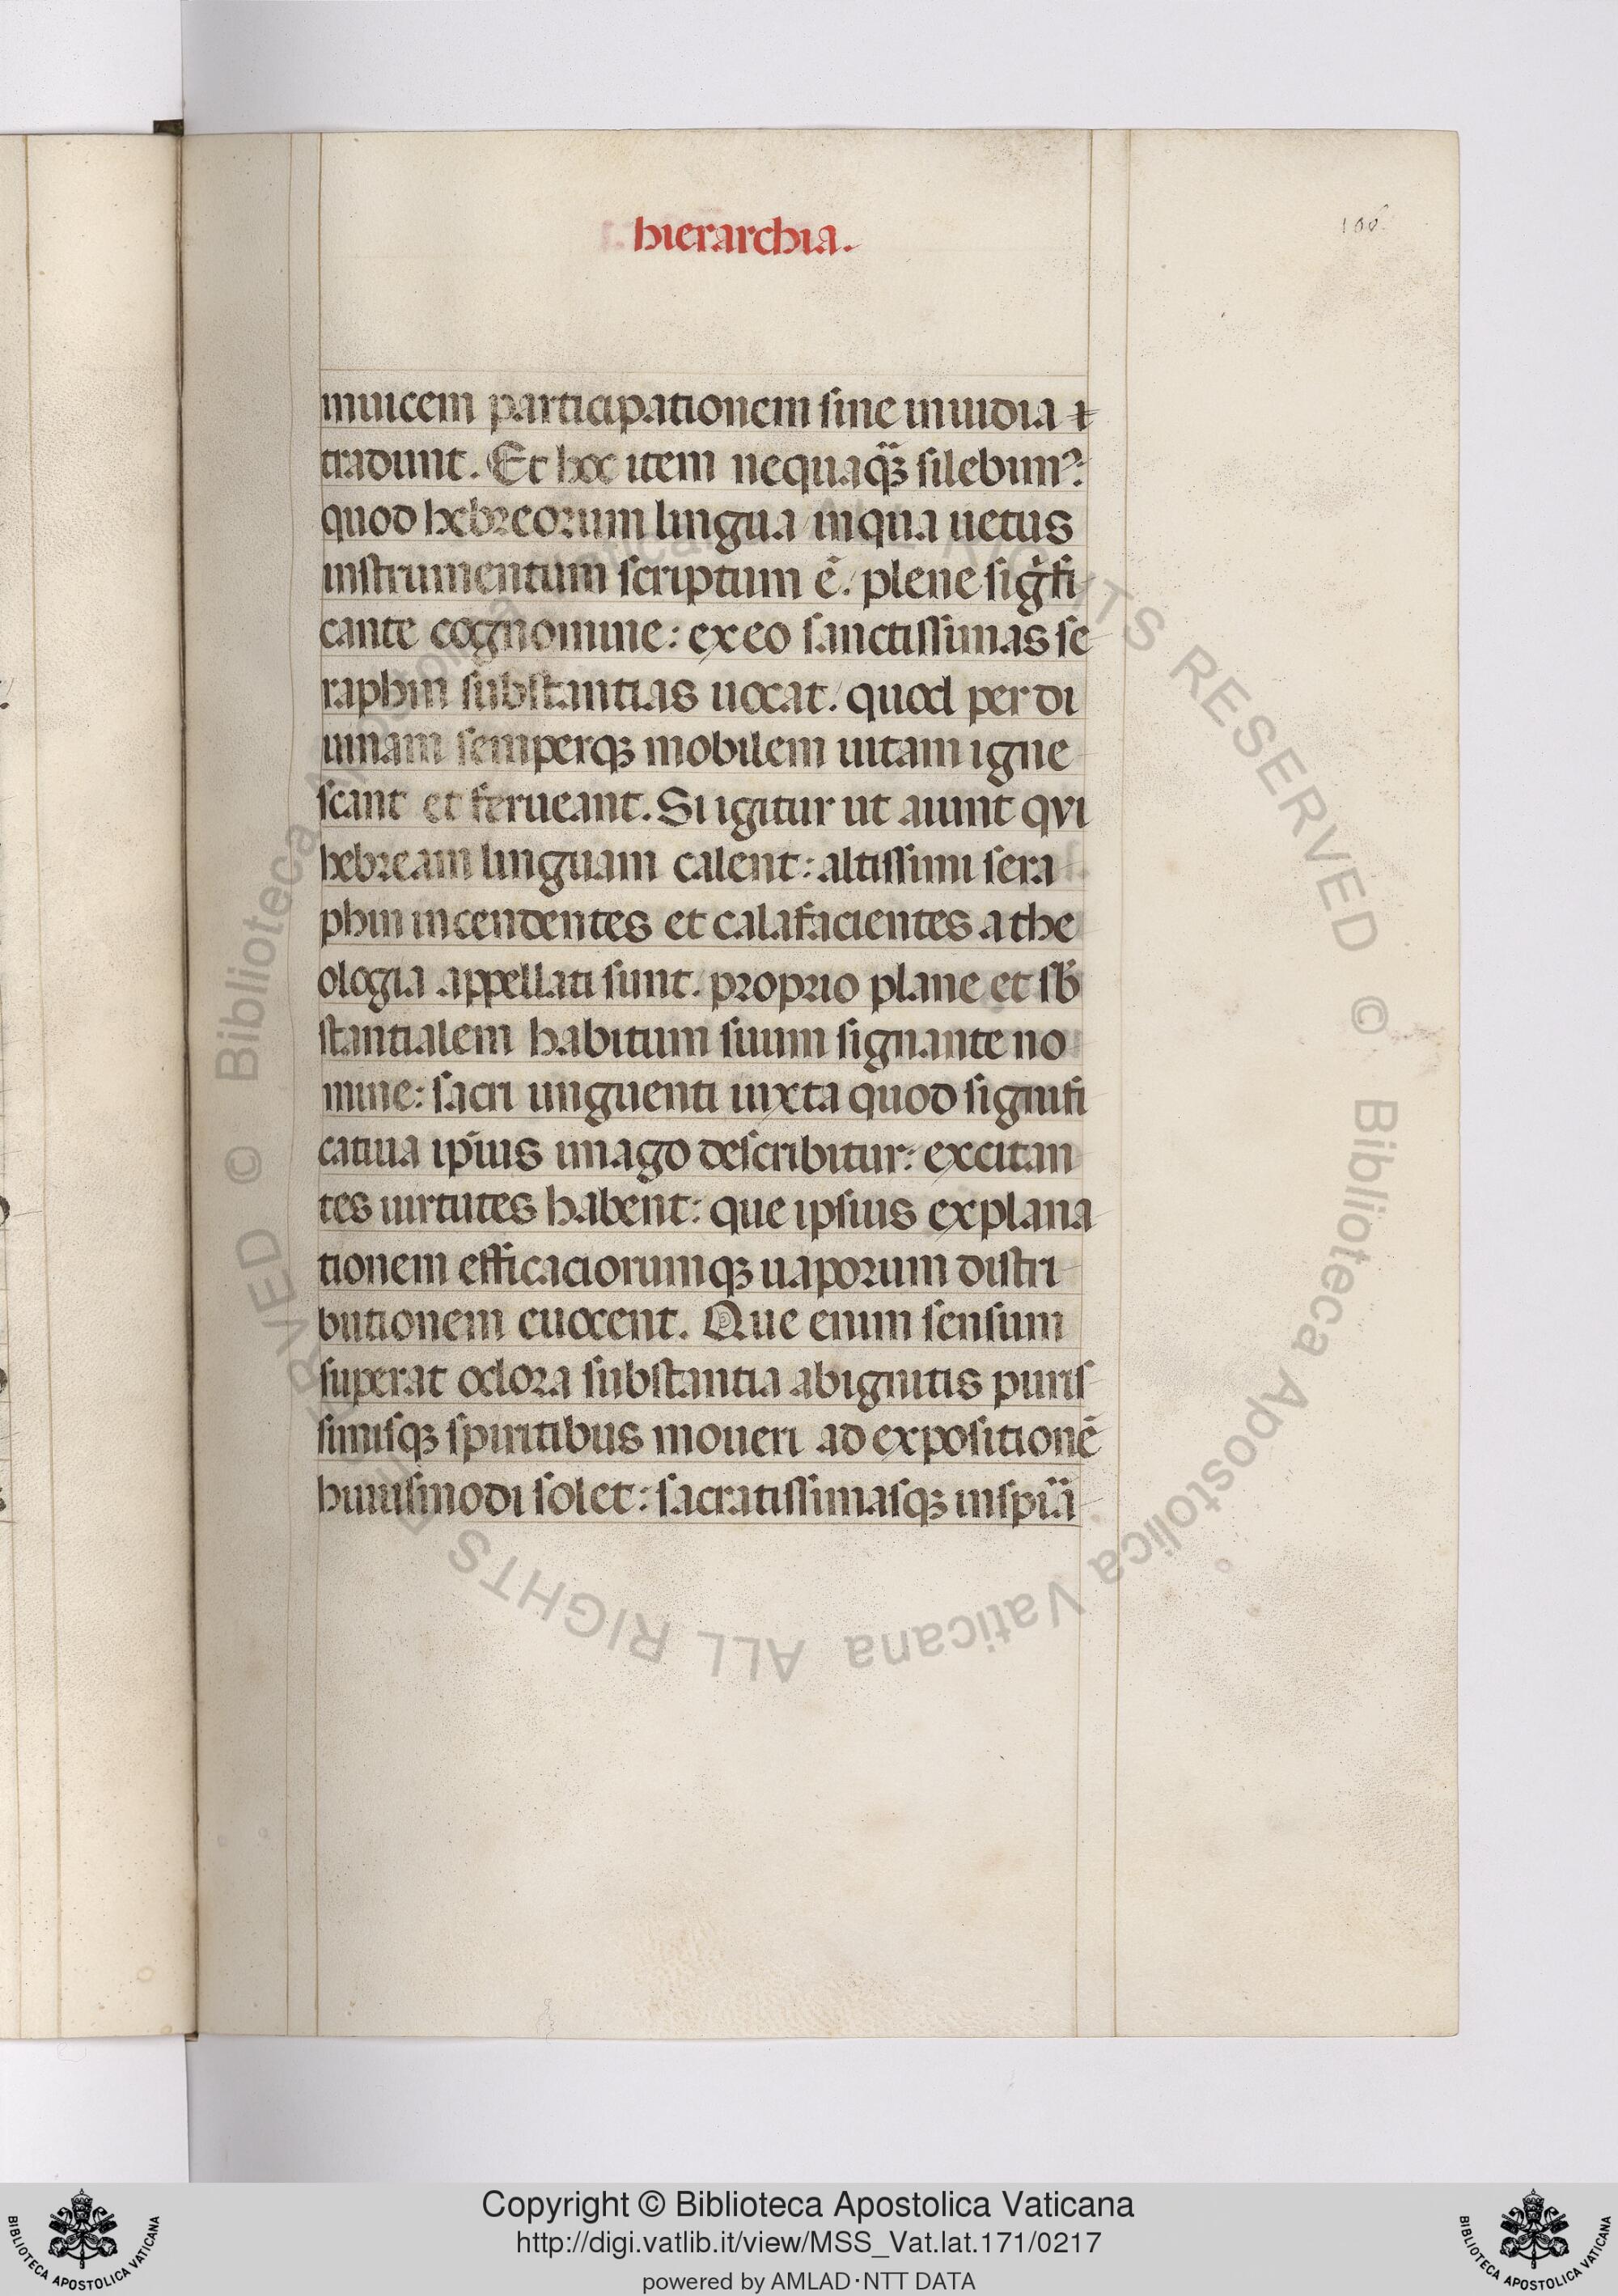 hierarchia.
106
inuicem participationem sine inuidia ⁊
tradunt. Et hoc item nequaqȝ silebim⁹:
quod hebreorum lingua in qua uetus
instrumentum scriptum ē. plene sigᷓfi
cante cognomine: ex eo sanctissimas se
raphin substantias uocat. quod per di
uinam semperqȝ mobilem uitam igne
scant et ferueant. Si igitur ut aiunt qui
hebream linguam calent: altissimi sera
phin incendentes et calafacientes a the
ologia appellati sunt. proprio plane et sb̄
stantialem habitum suum signante no
mine: sacri unguenti iuxta quod signifi
catiua ip̄ius imago describitur: excitan
tes uirtutes habent: que ipsius explana
tionem efficaciorumqȝ uaporum distri
butionem euocent. Que enim sensum
superat odora substantia ab ignitis puris
simisqȝ spiritibus moueri ad expositionē
huiusmodi solet: sacratissimasqȝ inspiā
© Biblioteca Apostolica Vaticana ALL RIGHTS RESERVED © Biblioteca Apostolica Vaticana ALL RIGHTS RESERVED
Copyright © Biblioteca Apostolica Vaticana
http://digi.vatlib.it/view/MSS_Vat.lat.171/0217
powered by AMLAD·NTT DATA
BIBLIOTECA APOSTOLICA VATICANA
BIBLIOTECA APOSTOLICA VATICANA